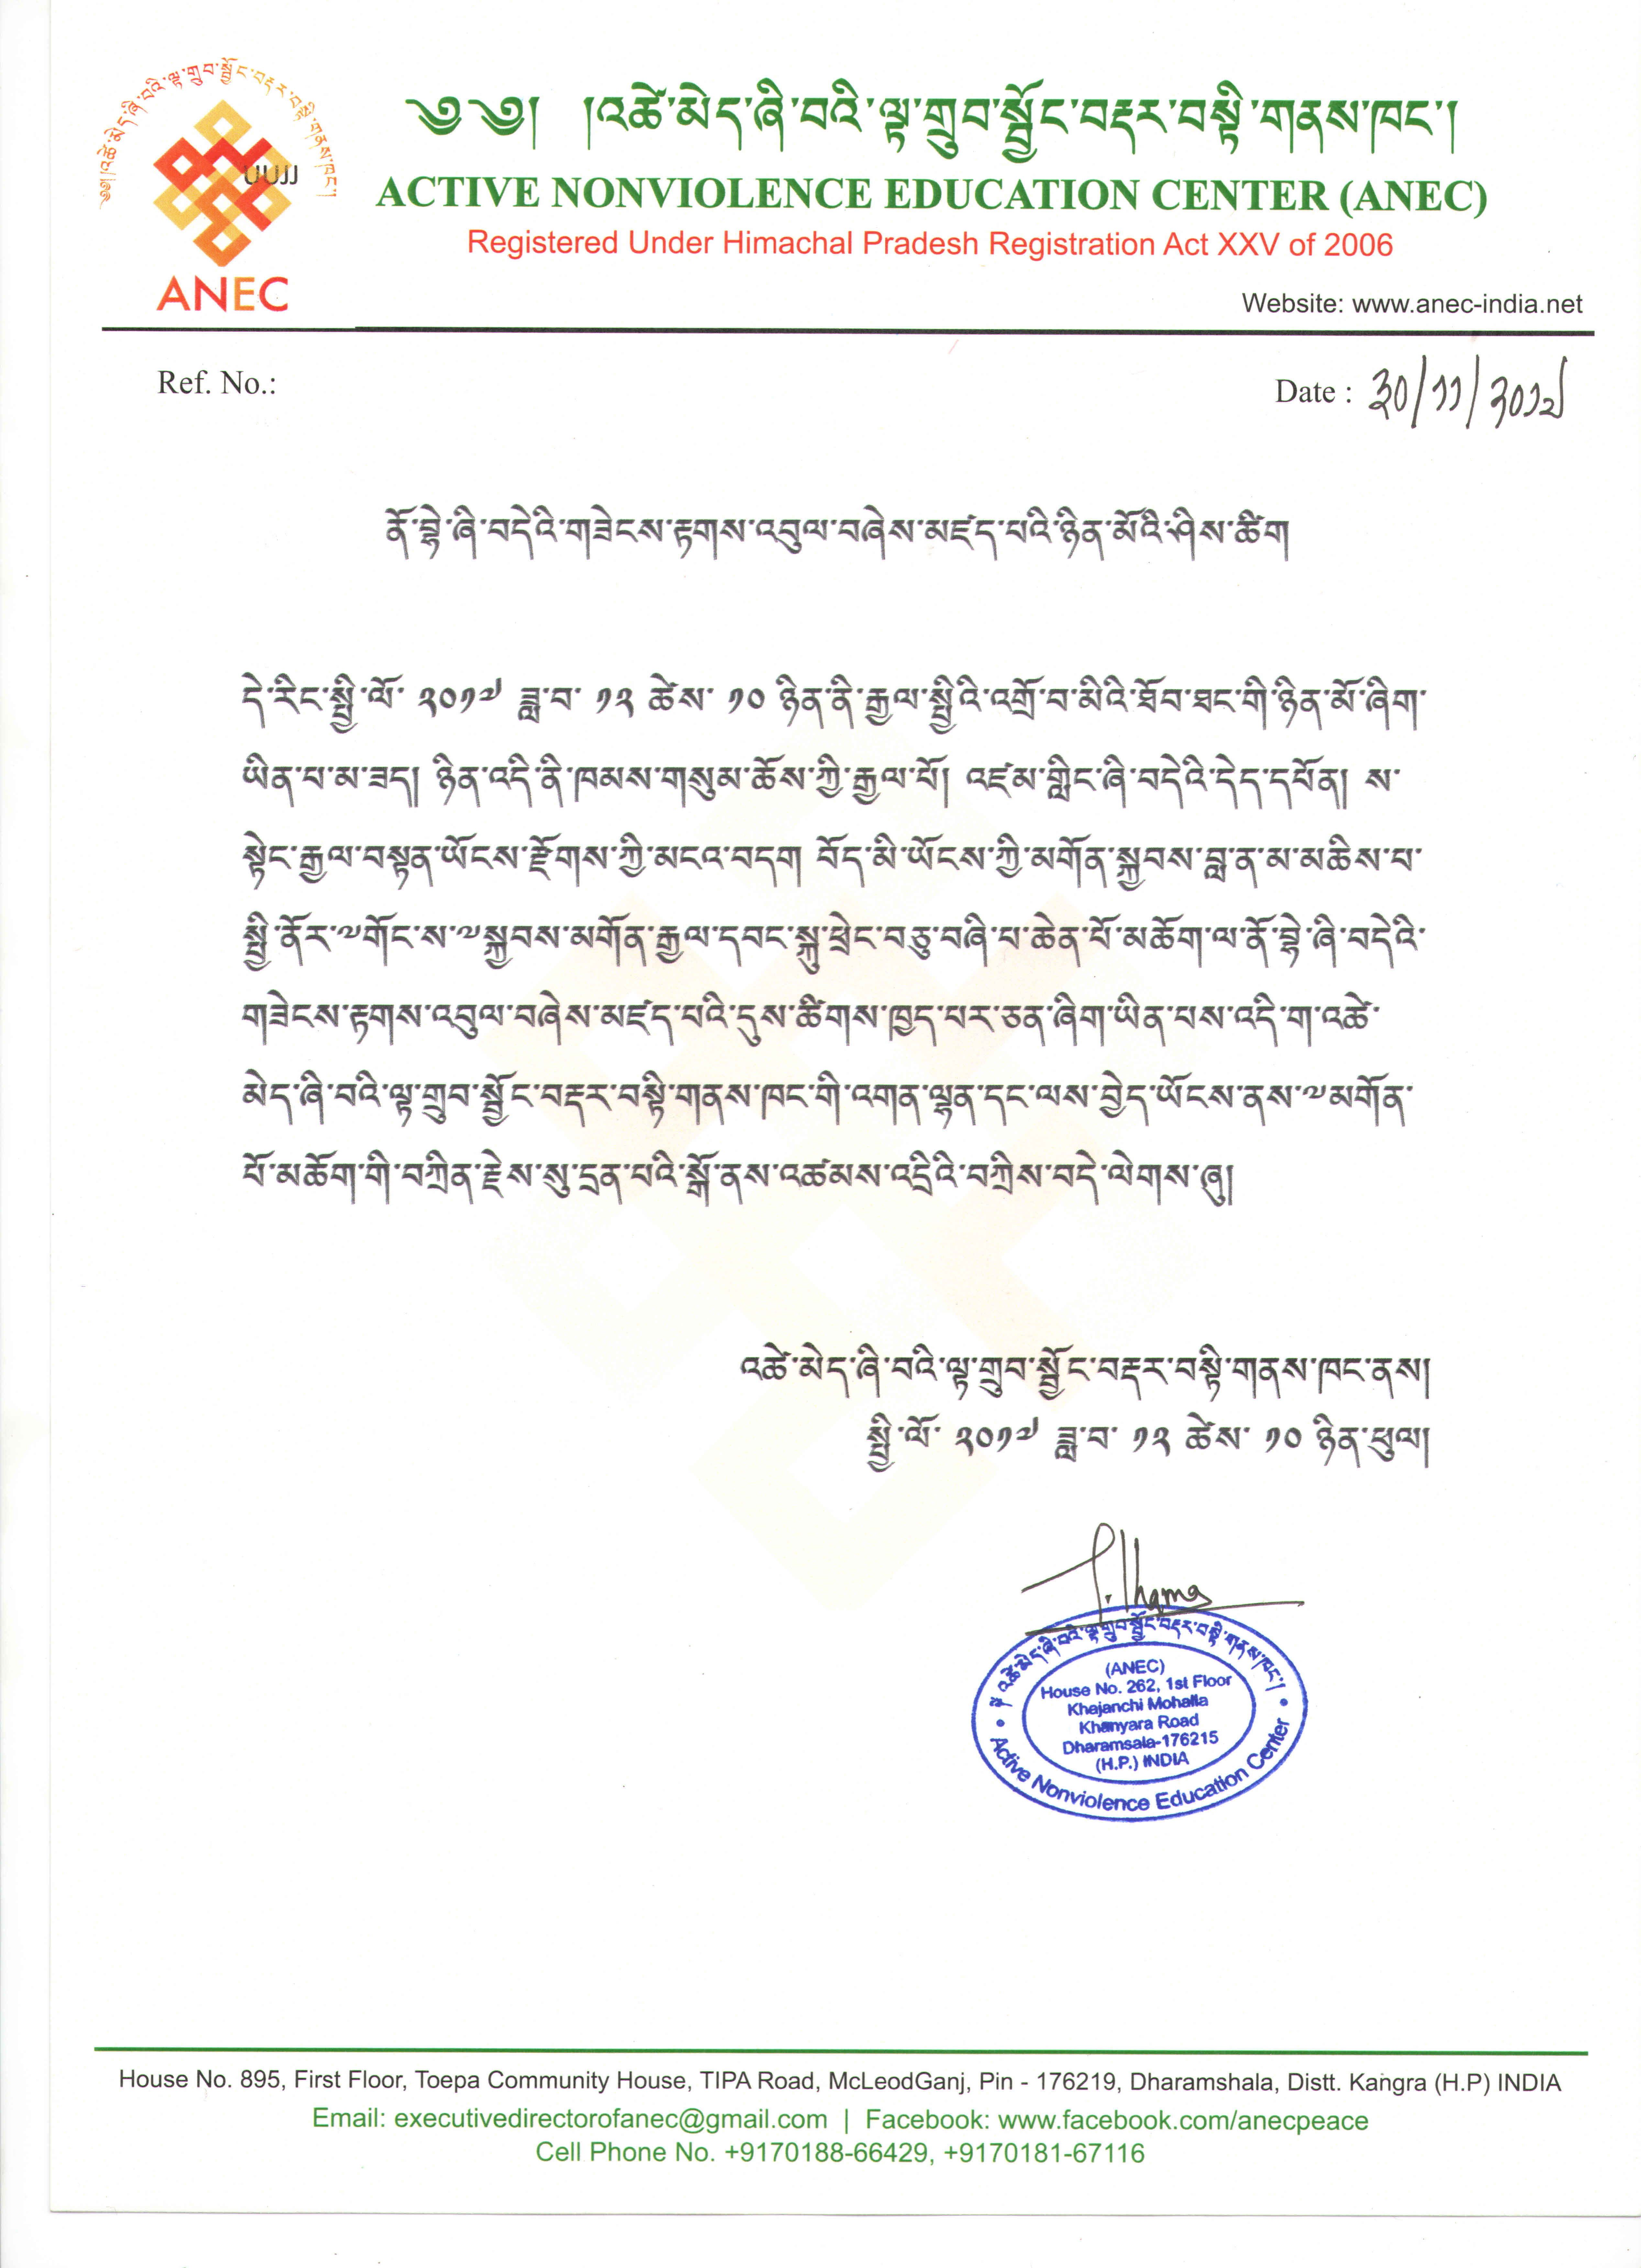 ༄༅། །འཚེ་མེད་ཞི་བའི་ལྟ་གྲུབ་སྦྱོང་བརྡར་བསྟི་གནས་ཁང་།
༄༅། །འཚེ་མེད་ཞི་བའི་ལྟ་གྲུབ་སྦྱོང་བརྡར་བསྟི་གནས་ཁང་།
UUJJ
ANEC
ACTIVE NONVIOLENCE EDUCATION CENTER (ANEC)
Registered Under Himachal Pradesh Registration Act XXV of 2006
Website: www.anec-india.net
Ref. No.:
Date : ३०/११/२०१७
ནོ་བྷེ་ཞི་བདེའི་གཟེངས་རྟགས་འབུལ་བཞེས་མཛད་པའི་ཉིན་མོའི་ཤིས་ཚིག
དེ་རིང་སྤྱི་ལོ་ ༢༠༡༧ ཟླ་བ་ ༡༢ ཚེས་ ༡༠ ཉིན་ནི་རྒྱལ་སྤྱིའི་འགྲོ་བ་མིའི་ཐོབ་ཐང་གི་ཉིན་མོ་ཞིག་
ཡིན་པ་མ་ཟད། ཉིན་འདི་ནི་ཁམས་གསུམ་ཆོས་ཀྱི་རྒྱལ་པོ། འཛམ་གླིང་ཞི་བདེའི་དེད་དཔོན། ས་
སྟེང་རྒྱལ་བསྟན་ཡོངས་རྫོགས་ཀྱི་མངའ་བདག བོད་མི་ཡོངས་ཀྱི་མགོན་སྐྱབས་བླ་ན་མ་མཆིས་པ་
སྤྱི་ནོར་༸གོང་ས་༸སྐྱབས་མགོན་རྒྱལ་དབང་སྐུ་ཕྲེང་བཅུ་བཞི་པ་ཆེན་པོ་མཆོག་ལ་ནོ་བྷེ་ཞི་བདེའི་
གཟེངས་རྟགས་འབུལ་བཞེས་མཛད་པའི་དུས་ཚིགས་ཁྱད་པར་ཅན་ཞིག་ཡིན་པས་འདི་ག་འཚེ་
མེད་ཞི་བའི་ལྟ་གྲུབ་སྦྱོང་བརྡར་བསྟི་གནས་ཁང་གི་འགན་ལྷན་དང་ལས་བྱེད་ཡོངས་ནས་༸མགོན་
པོ་མཆོག་གི་བཀྲིན་རྗེས་སུ་དྲན་པའི་སྒོ་ནས་འཚམས་འདྲིའི་བཀྲིས་བདེ་ལེགས་ཞུ།
འཚེ་མེད་ཞི་བའི་ལྟ་གྲུབ་སྦྱོང་བརྡར་བསྟི་གནས་ཁང་ནས།
སྤྱི་ལོ་ ༢༠༡༧ ཟླ་བ་ ༡༢ ཚེས་ ༡༠ ཉིན་ཕུལ།
འཚེ་མེད་ཞི་བའི་ལྟ་གྲུབ་སྦྱོང་བརྡར་བསྟི་གནས་ཁང་།
(ANEC)
House No. 262, 1st Floor
Khajanchi Mohalla
Khanyara Road
Dharamsala-176215
(H.P.) INDIA
Active Nonviolence Education Center
House No. 895, First Floor, Toepa Community House, TIPA Road, McLeodGanj, Pin - 176219, Dharamshala, Distt. Kangra (H.P) INDIA
Email: executivedirectorofanec@gmail.com | Facebook: www.facebook.com/anecpeace
Cell Phone No. +9170188-66429, +9170181-67116